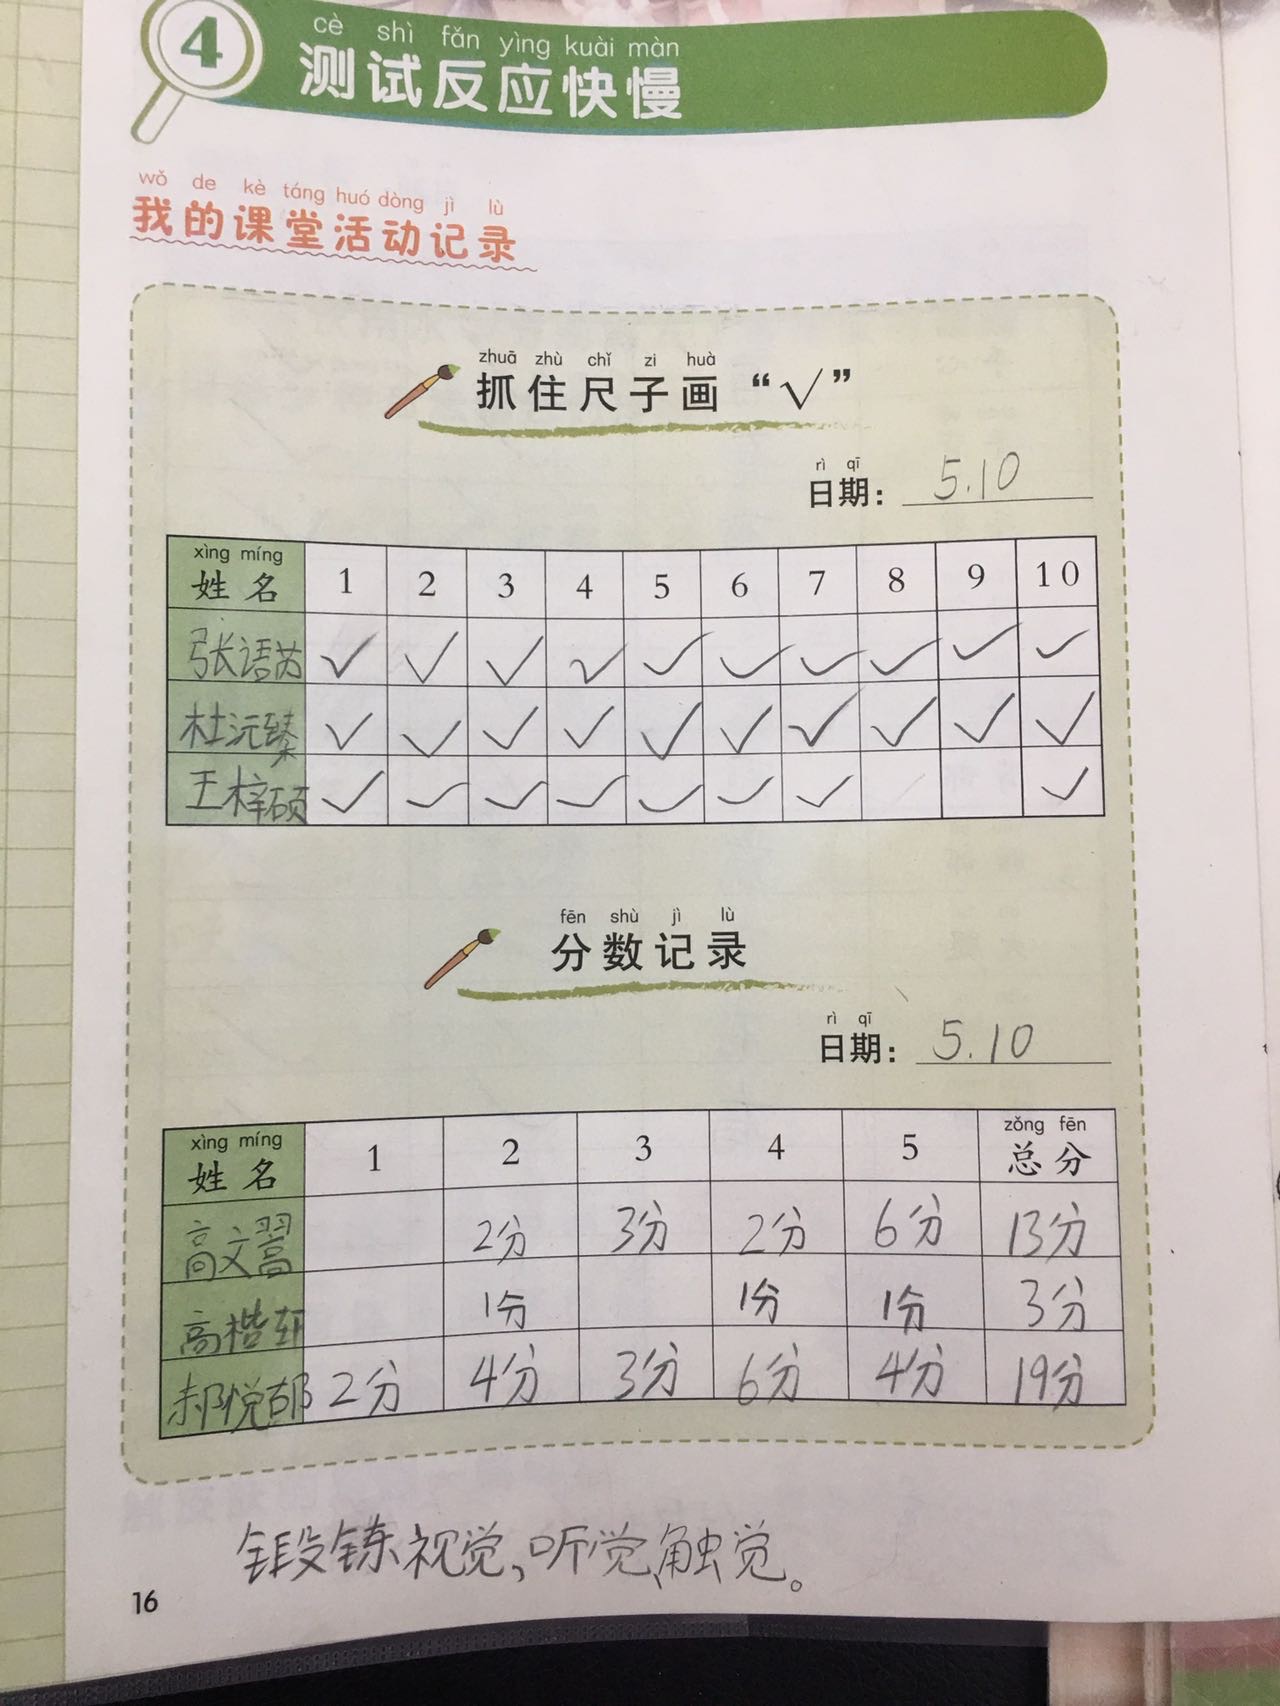 4
cè shì fǎn yìng kuài màn
测试反应快慢
wǒ de kè táng huó dòng jì lù
我的课堂活动记录
zhuā zhù chǐ zi huà
抓住尺子画“√”
rì qī
日期： 5.10
xìng míng
姓名 1 2 3 4 5 6 7 8 9 10
张语芮 ✓ ✓ ✓ ✓ ✓ ✓ ✓ ✓ ✓ ✓
杜沅臻 ✓ ✓ ✓ ✓ ✓ ✓ ✓ ✓ ✓ ✓
王梓硕 ✓ ✓ ✓ ✓ ✓ ✓ ✓ ✓
fēn shù jì lù
分数记录
rì qī
日期： 5.10
xìng míng zǒng fēn
姓名 1 2 3 4 5 总分
高文翯 2分 3分 2分 6分 13分
高楷轩 1分 1分 1分 3分
郝悦郁 2分 4分 3分 6分 4分 19分
锻铼视觉、听觉、触觉。
16